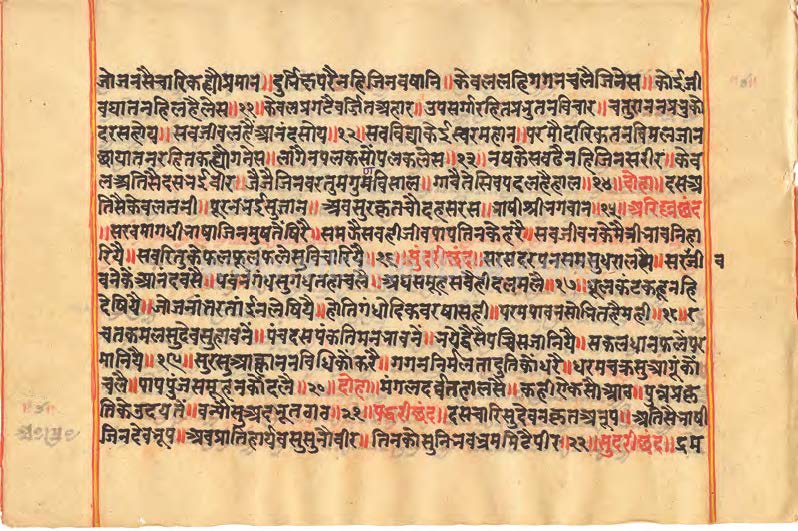 जोजनसैचारिकह्यौप्रमान॥दुर्निक्षपरैनहिजिनवषानि॥केवललहिगगनचलैजिनेस॥कोईजी
वघातनहिलहैलेस॥११॥केवलप्रगटेवर्जितअहार॥उपसर्गरहितप्रभुतनविचार॥चतुराननप्रभुको
दरसहोय॥सबजीवलहैआनदसोय॥१२॥सबविद्याकेईस्वरमहान॥परमौदारिकतनविमलजान
छायातनरहितकह्यौगनेस॥लागैनपलकसोंपलकलेस॥१३॥नषकेसवढैनहिजिनसरीर॥केव
लअतिसैदसनईवीर॥जैजैजिनवरतुमगुणविसाल॥गावैतेसिवपदलहैहाल॥१४॥दोहा॥दसअ
तिसैकेवलतनी॥पूरनभईसुजान॥अवसुरकृतचौदहसरस॥भाषीश्रीभगवान॥१५॥अरिल्लछंद
॥सरवमागधीभाषाजिनमुषतेंषिरै॥समझैसवहीजीवपापतिनकेहरै॥सवजीवनकेमैत्रीभावनिहा
रियै॥सवरितुकेफलफूलफलेसुविचारियै॥१६॥सुंदरीछंद॥सरसदरपनसमसुधरालसै॥सरवजी व
वनकेंआनंदवसै॥पवनगंधसुगंधतहाचलै॥अघसमूहसवैहीदलमलै॥१७॥धूलकंटकहूनहि
देषियै॥जोजनांतरताईनलेषियै॥होतिगंधोदिकवरषासही॥परमपावनसोभितहैमही॥१८॥र
चतकमलसुदेवसुहावनें॥पंचदसपंकतिमनभावनें॥भयेद्वैसैपच्चिसजानियै॥सकलधानफलेंपर
मानियै॥१९॥सुरसुआह्वाननविधिकोंकरै॥गगननिर्मलतादुतिकोंधरै॥धरमचक्रसुआगूंकों
चलै॥पापपुंजसमूहनकोंदलै॥२०॥दोहा॥मंगलदर्वतहालसै॥कहीएकसौआठ॥पुन्यप्रकृ
तिकेउदयतें॥वन्यौसुअदभूतगठ॥२१॥पद्धरीछंद॥दसचारिसुदेवनकृतअनूप॥अतिसैभाषी
जिनदेवभूप॥अवप्रातिहार्यवसुसुनौवीर॥तिनकोसुनिभवभ्रममिटेपीर॥२२॥सुंदरीछंद॥द्रम